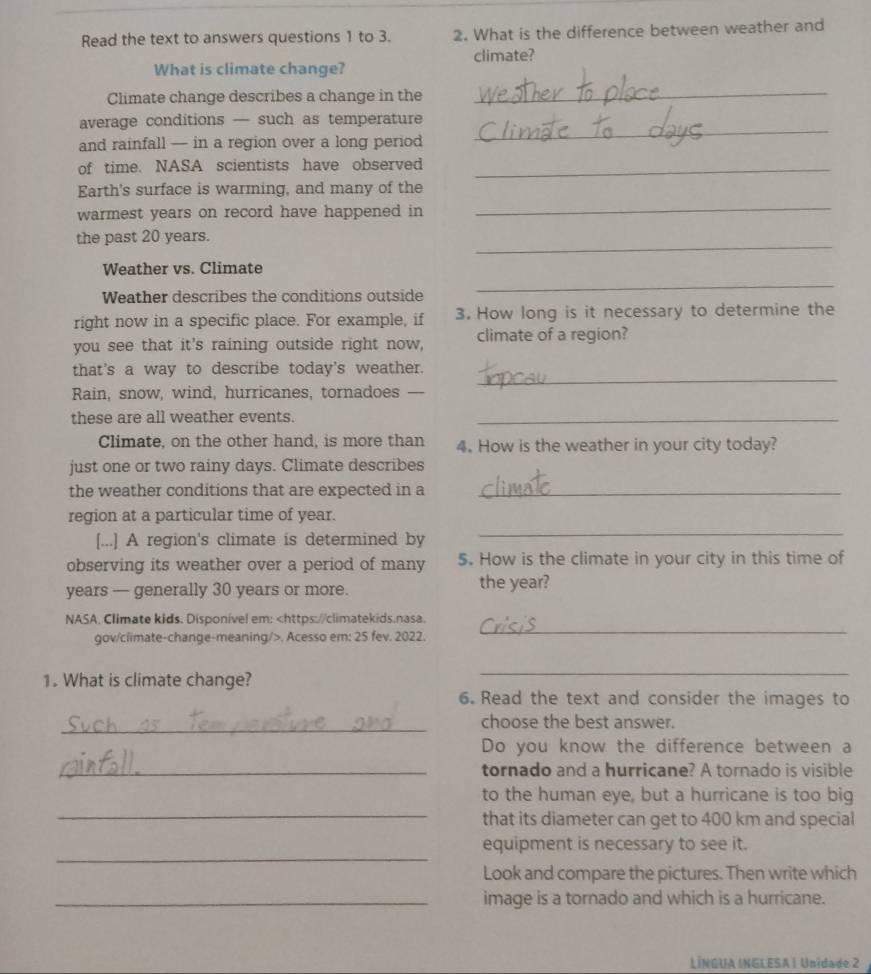 Read the text to answers questions 1 to 3.
What is climate change?
Climate change describes a change in the
average conditions — such as temperature
and rainfall — in a region over a long period
of time. NASA scientists have observed
Earth's surface is warming, and many of the
warmest years on record have happened in
the past 20 years.
Weather vs. Climate
Weather describes the conditions outside
right now in a specific place. For example, if
you see that it's raining outside right now,
that's a way to describe today's weather.
Rain, snow, wind, hurricanes, tornadoes —
these are all weather events.
Climate, on the other hand, is more than
just one or two rainy days. Climate describes
the weather conditions that are expected in a
region at a particular time of year.
[...] A region's climate is determined by
observing its weather over a period of many
years — generally 30 years or more.
NASA. Climate kids. Disponível em: <https://climatekids.nasa.
gov/climate-change-meaning/>. Acesso em: 25 fev. 2022.
1. What is climate change?
Such as temperature and
rainfall.
2. What is the difference between weather and
climate?
Weather to place
Climate to days
3. How long is it necessary to determine the
climate of a region?
4. How is the weather in your city today?
climate
5. How is the climate in your city in this time of
the year?
Crisis
6. Read the text and consider the images to
choose the best answer.
Do you know the difference between a
tornado and a hurricane? A tornado is visible
to the human eye, but a hurricane is too big
that its diameter can get to 400 km and special
equipment is necessary to see it.
Look and compare the pictures. Then write which
image is a tornado and which is a hurricane.
LÍNGUA INGLESA | Unidade 2